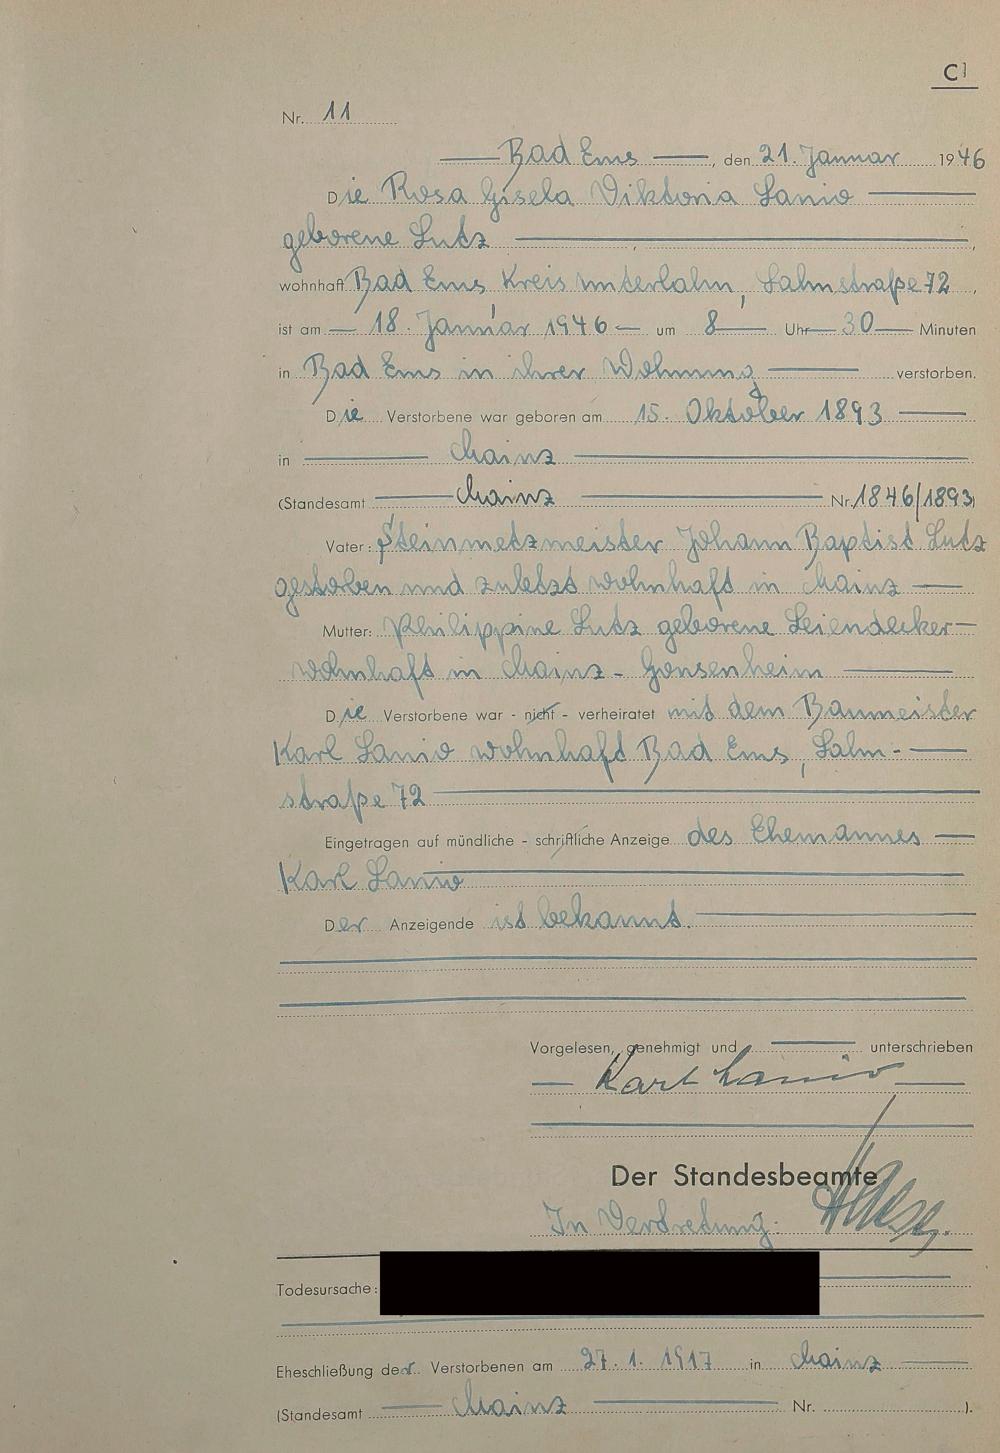 C1
Nr. 11
Bad Ems, den 21. Januar 1946
Die Rosa Gisela Viktoria Lanio
geborene Lutz,
wohnhaft Bad Ems Kreis Unterlahn, Lahnstraße 72,
ist am 18. Januar 1946 um 8 Uhr 30 Minuten
in Bad Ems in ihrer Wohnung verstorben.
Die Verstorbene war geboren am 15. Oktober 1893
in Mainz
(Standesamt Mainz Nr. 1846/1893)
Vater: Steinmetzmeister Johann Baptist Lutz
gestorben und zuletzt wohnhaft in Mainz
Mutter: Philippine Lutz geborene Leiendecker
wohnhaft in Mainz-Gonsenheim
Die Verstorbene war - nicht - verheiratet mit dem Baumeister
Karl Lanio wohnhaft Bad Ems, Lahn-
straße 72
Eingetragen auf mündliche - schriftliche Anzeige des Ehemannes
Karl Lanio
Der Anzeigende ist bekannt.
Vorgelesen, genehmigt und unterschrieben
Karl Lanio
Der Standesbeamte
In Vertretung:
Todesursache:
Eheschließung der Verstorbenen am 27.1.1917 in Mainz
(Standesamt Mainz Nr. ).